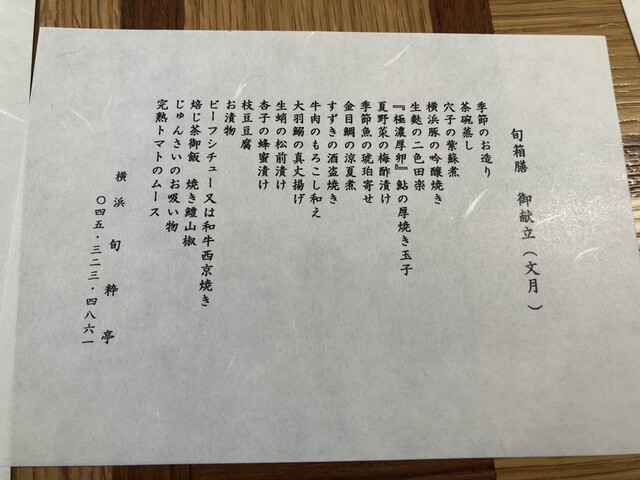 旬箱膳　御献立（文月）
季節のお造り
茶碗蒸し
穴子の紫蘇煮
横浜豚の吟醸焼き
生麩の二色田楽
『極濃厚卵』鮎の厚焼き玉子
夏野菜の梅酢漬け
季節魚の琥珀寄せ
金目鯛の涼夏煮
すずきの酒盗焼き
牛肉のもろこし和え
大羽鰯の真丈揚げ
生蛸の松前漬け
杏子の蜂蜜漬け
枝豆豆腐
お漬物
ビーフシチュー又は和牛西京焼き
焙じ茶御飯　焼き鱧山椒
じゅんさいのお吸い物
完熟トマトのムース
横浜旬粋亭
〇四五・三二三・四八六一